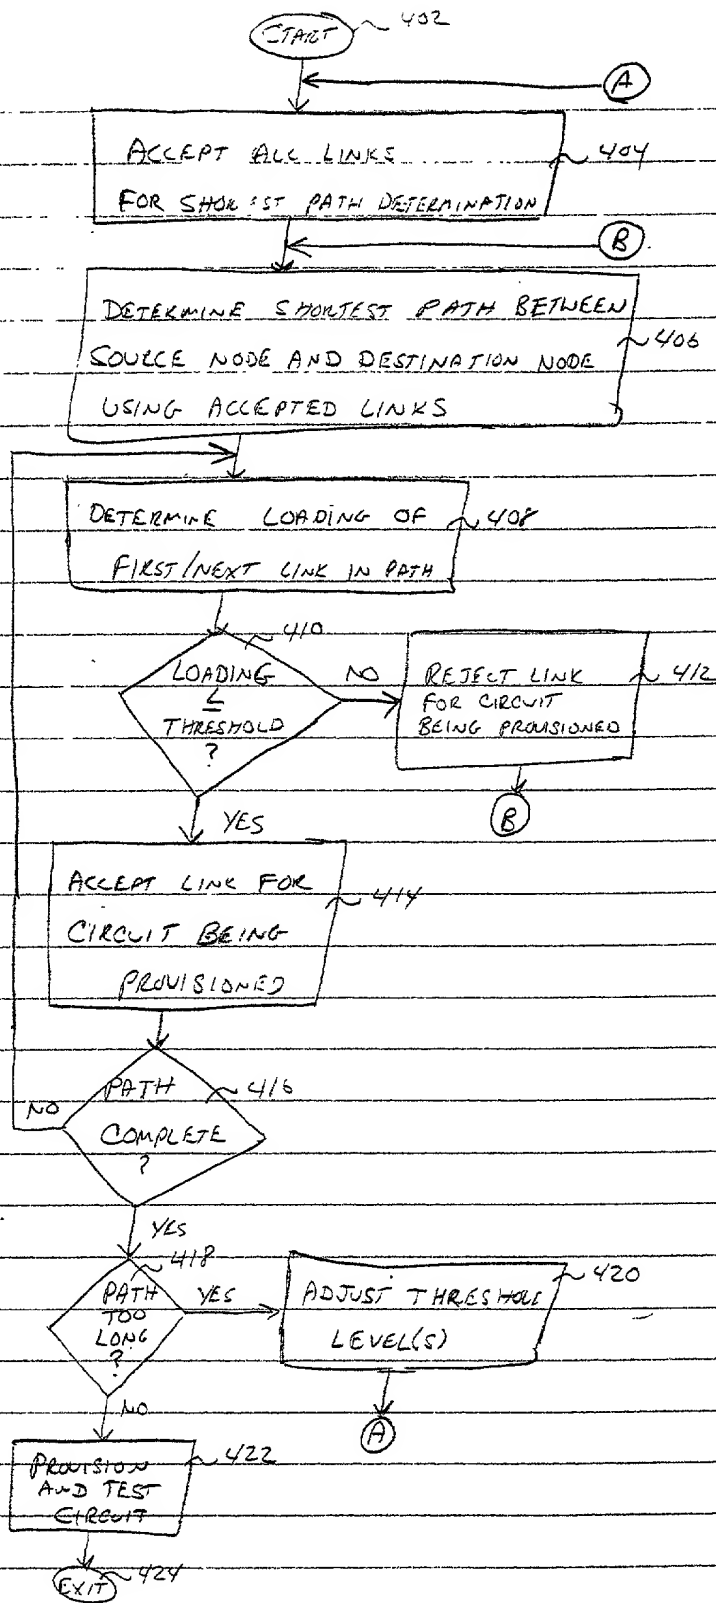 START 402
A
ACCEPT ALL LINKS
FOR SHORTEST PATH DETERMINATION 404
B
DETERMINE SHORTEST PATH BETWEEN
SOURCE NODE AND DESTINATION NODE 406
USING ACCEPTED LINKS
DETERMINE LOADING OF 408
FIRST/NEXT LINK IN PATH
410
LOADING
≤
THRESHOLD
?
NO
REJECT LINK 412
FOR CIRCUIT
BEING PROVISIONED
B
YES
ACCEPT LINK FOR 414
CIRCUIT BEING
PROVISIONED
PATH 416
COMPLETE
?
NO
YES
418
PATH
TOO
LONG
?
YES
ADJUST THRESHOLD 420
LEVEL(S)
A
NO
PROVISION 422
AND TEST
CIRCUIT
EXIT 424